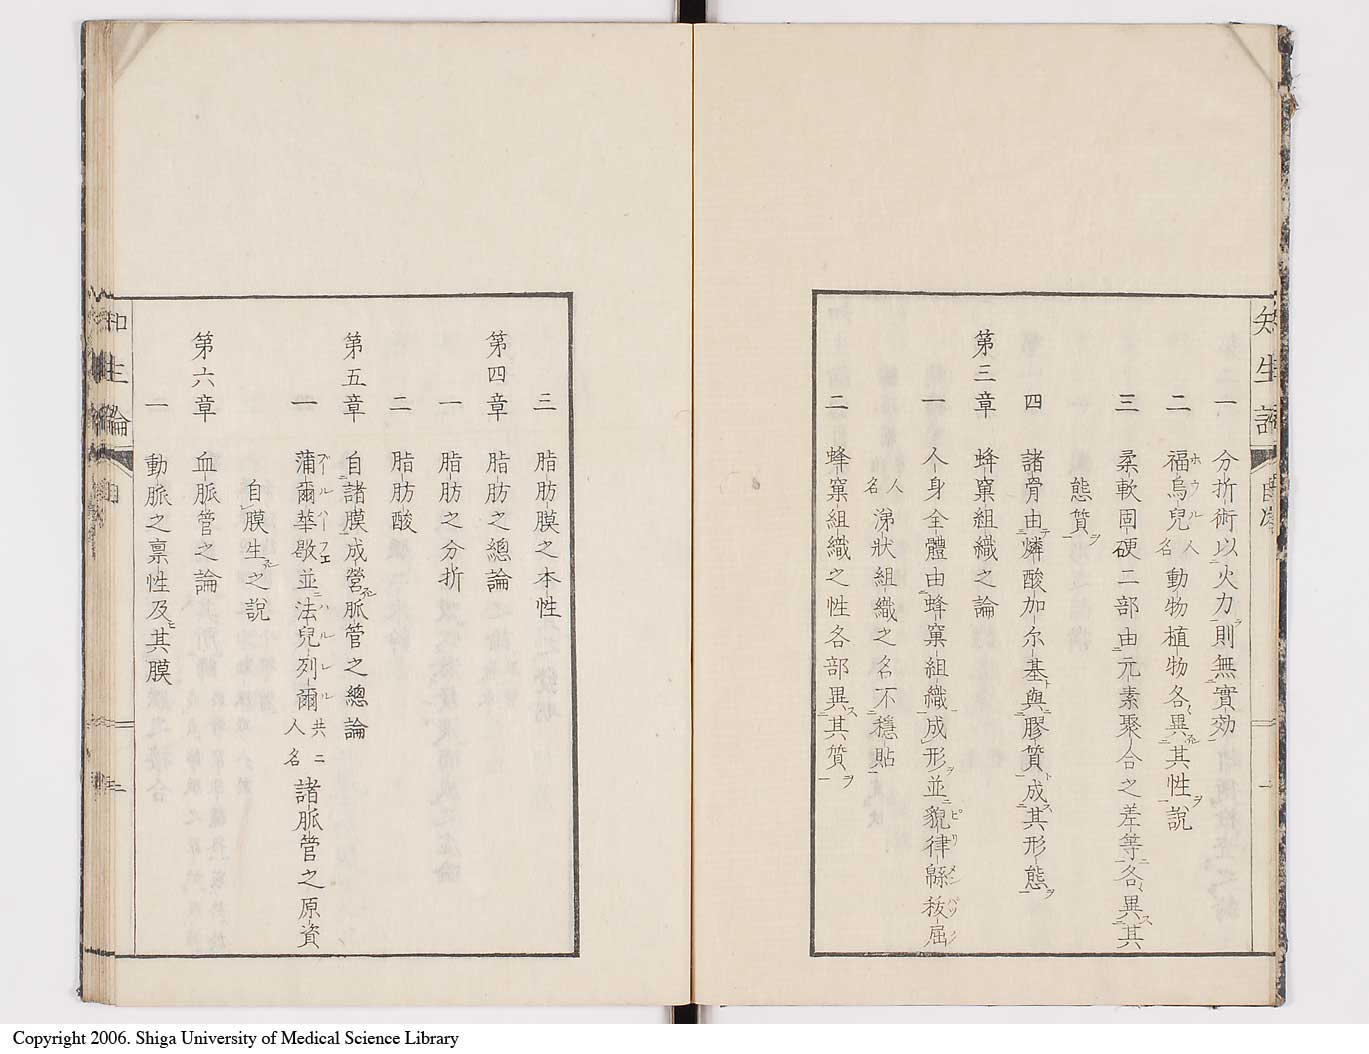 知生論
一 分折術以火力則無實効
二 福烏兒人名動物植物各異其性說
三 柔軟固硬二部由元素聚合之差等各異其
態質
四 諸骨由燐酸加尔基與膠質成其形態
第三章 蜂窠組織之論
一 人身全體由蜂窠組織成形並貌律緜秡屈
人名 涕狀組織之名不穩貼
二 蜂窠組織之性各部異其質
三 脂肪膜之本性
第四章 脂肪之總論
一 脂肪之分折
二 脂肪酸
第五章 自諸膜成營脈管之總論
一 蒲爾華歇並法兒列爾共二人名 諸脈管之原資
自膜生之說
第六章 血脈管之論
一 動脈之禀性及其膜
知生論
Copyright 2006. Shiga University of Medical Science Library